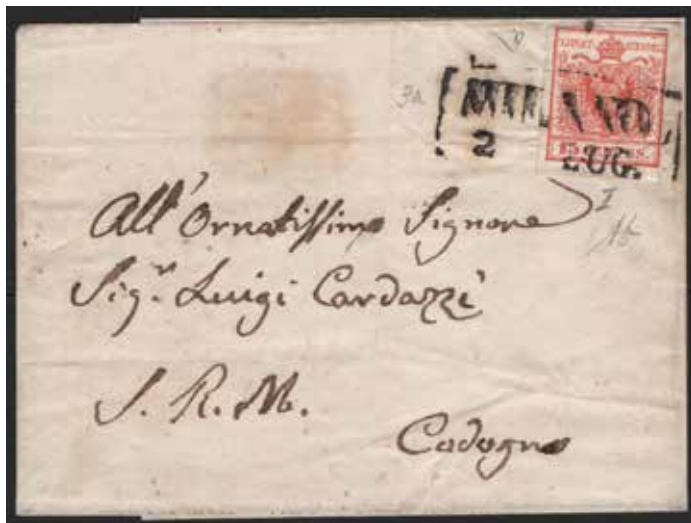 MILANO
2 LUG.
15 CENTES.
3a
I
All'Ornatissimo Signore
Sig.r Luigi Cardazzi
S. R. M.
Codogno